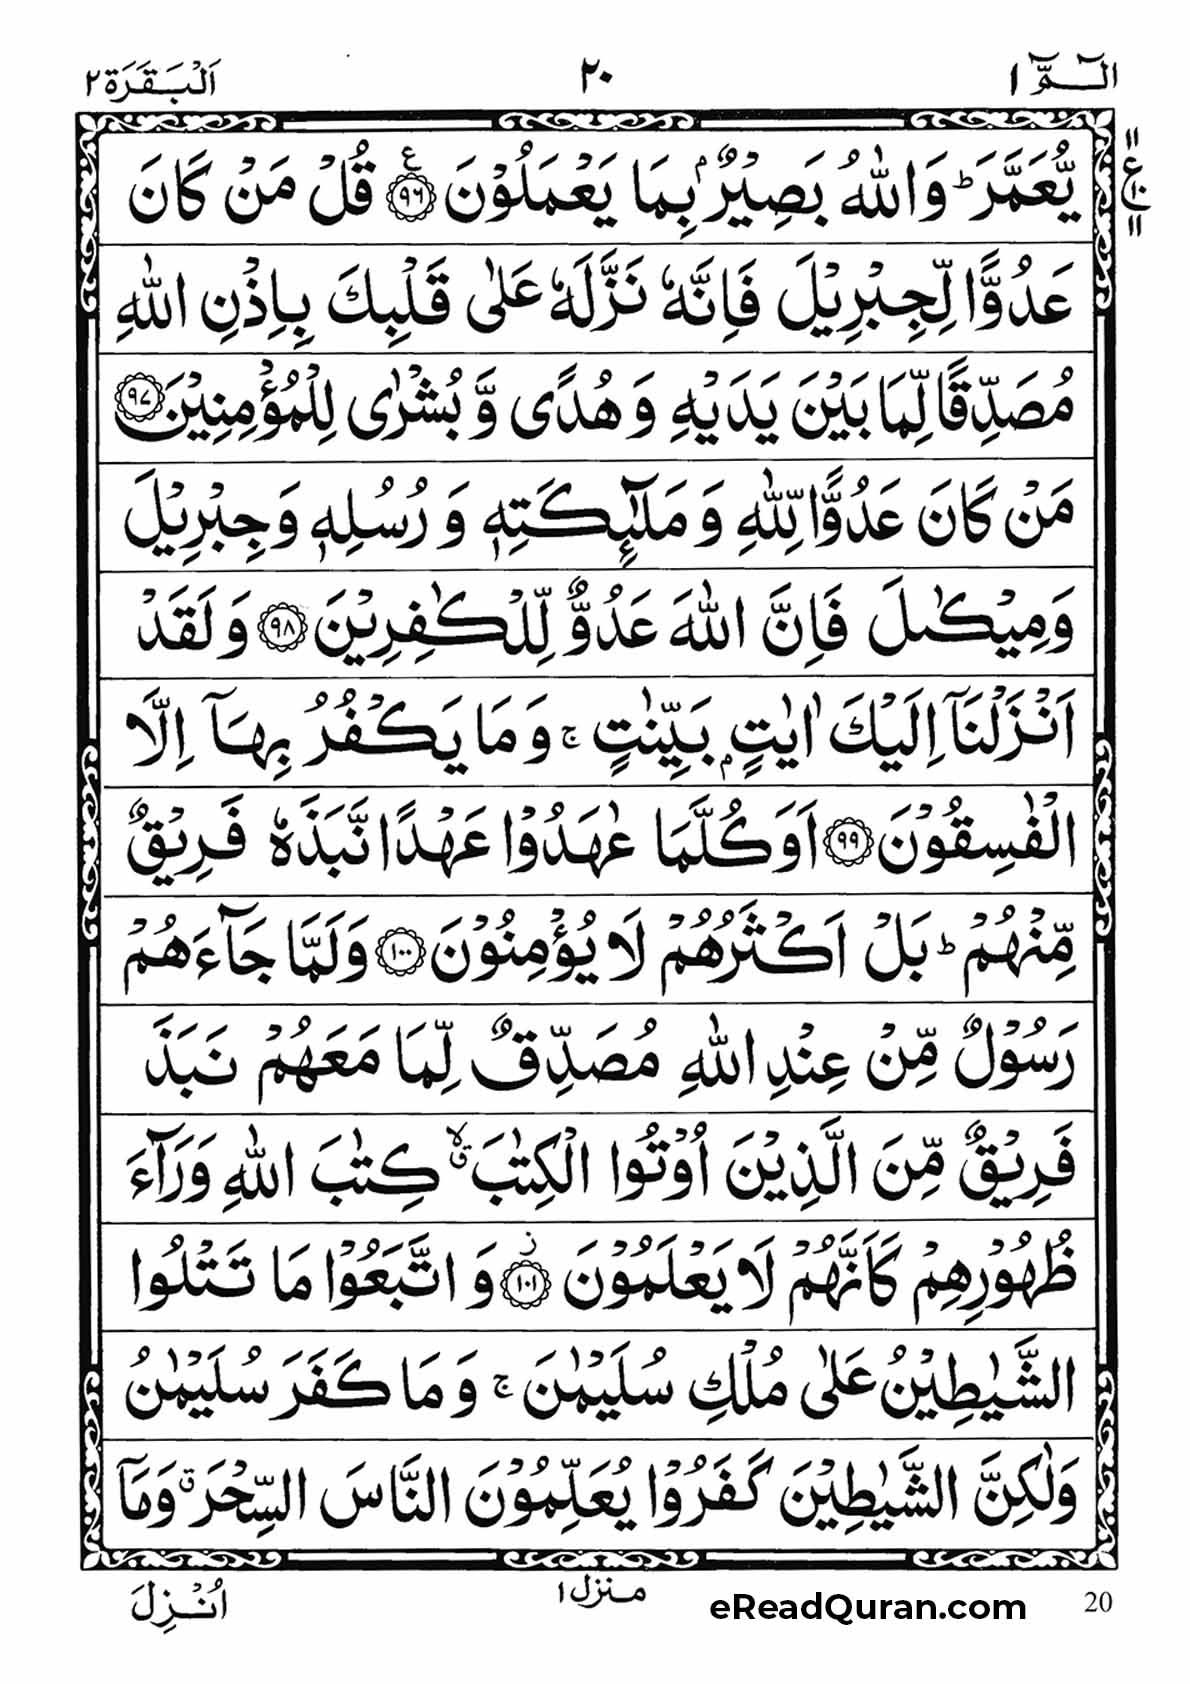 الٓمّٓ ١
٢٠
اَلْبَقَرَة ٢
یُّعَمَّرَ ؕ وَاللّٰهُ بَصِیْرٌۢ بِمَا یَعْمَلُوْنَ ﴿۹۶﴾ ع قُلْ مَنْ كَانَ
عَدُوًّا لِّجِبْرِیْلَ فَاِنَّهٗ نَزَّلَهٗ عَلٰی قَلْبِكَ بِاِذْنِ اللّٰهِ
مُصَدِّقًا لِّمَا بَیْنَ یَدَیْهِ وَ هُدًی وَّ بُشْرٰی لِلْمُؤْمِنِیْنَ ﴿۹۷﴾
مَنْ كَانَ عَدُوًّا لِّلّٰهِ وَ مَلٰٓىِٕكَتِهٖ وَ رُسُلِهٖ وَ جِبْرِیْلَ
وَ مِیْكٰىلَ فَاِنَّ اللّٰهَ عَدُوٌّ لِّلْكٰفِرِیْنَ ﴿۹۸﴾ وَ لَقَدْ
اَنْزَلْنَاۤ اِلَیْكَ اٰیٰتٍۭ بَیِّنٰتٍ ۚ وَ مَا یَكْفُرُ بِهَاۤ اِلَّا
الْفٰسِقُوْنَ ﴿۹۹﴾ اَوَ كُلَّمَا عٰهَدُوْا عَهْدًا نَّبَذَهٗ فَرِیْقٌ
مِّنْهُمْ ؕ بَلْ اَكْثَرُهُمْ لَا یُؤْمِنُوْنَ ﴿۱۰۰﴾ وَلَمَّا جَآءَهُمْ
رَسُوْلٌ مِّنْ عِنْدِ اللّٰهِ مُصَدِّقٌ لِّمَا مَعَهُمْ نَبَذَ
فَرِیْقٌ مِّنَ الَّذِیْنَ اُوْتُوا الْكِتٰبَ ۙق كِتٰبَ اللّٰهِ وَرَآءَ
ظُهُوْرِهِمْ كَاَنَّهُمْ لَا یَعْلَمُوْنَ ﴿۱۰۱﴾ ز وَ اتَّبَعُوْا مَا تَتْلُوا
الشَّیٰطِیْنُ عَلٰی مُلْكِ سُلَیْمٰنَ ۚ وَ مَا كَفَرَ سُلَیْمٰنُ
وَلٰكِنَّ الشَّیٰطِیْنَ كَفَرُوْا یُعَلِّمُوْنَ النَّاسَ السِّحْرَ ق وَمَاۤ
اُنْزِلَ
منزل ١
eReadQuran.com
20